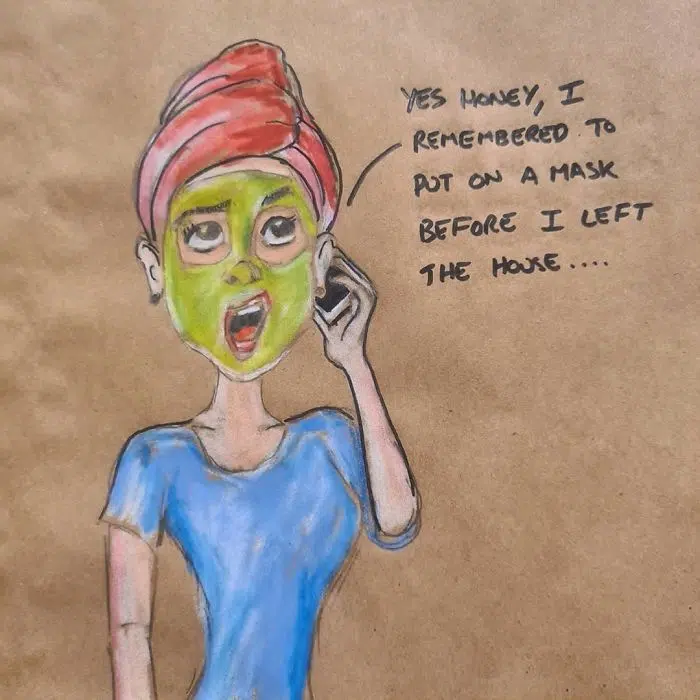 YES HONEY, I
REMEMBERED TO
PUT ON A MASK
BEFORE I LEFT
THE HOUSE....